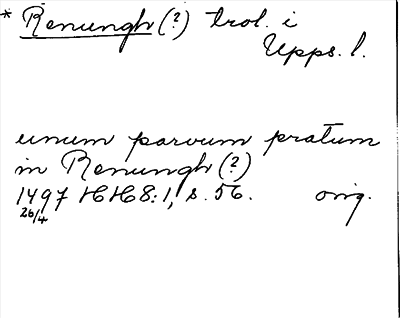 * Renungh (?) trol. i
Upps. l.
unum parvum pratum
in Renungh (?)
1497 HH 8:1, s. 56. orig.
26/4